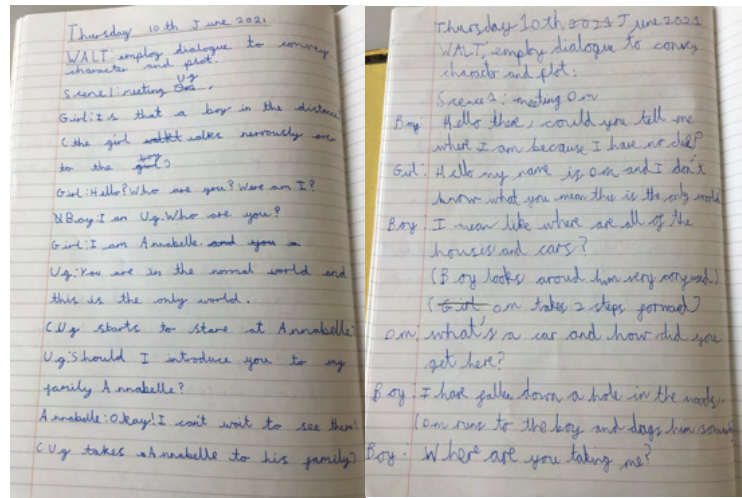 Thursday 10th June 2021
WALT: employ dialogue to convey
character and plot.
Scene 1: meeting Ug
Girl: Is that a boy in the distance
(the girl walks nervously over
to the boy)
Girl: Hello? Who are you? Were am I?
Boy: I am Ug. Who are you?
Girl: I am Annabelle. and you
Ug: You are in the normal world and
this is the only world.
(Ug starts to stare at Annabelle)
Ug: Should I introduce you to my
family Annabelle?
Annabelle: Okay! I can't wait to see them!
(Ug takes Annabelle to his family)
Thursday 10th 2021 June 2021
WALT: employ dialogue to convey
character and plot:
Scene 1: meeting Om
Boy: Hello there, could you tell me
where I am because I have no clue?
Girl: Hello my name is Om and I don't
know what you mean this is the only world
Boy: I mean like where are all of the
houses and cars?
(Boy looks around him very confused)
(Girl Om takes 2 steps forward)
Om: what's a car and how did you
get here?
Boy: I have fallen down a hole in the woods.
(Om runs to the boy and drags him
Boy: Where are you taking me?